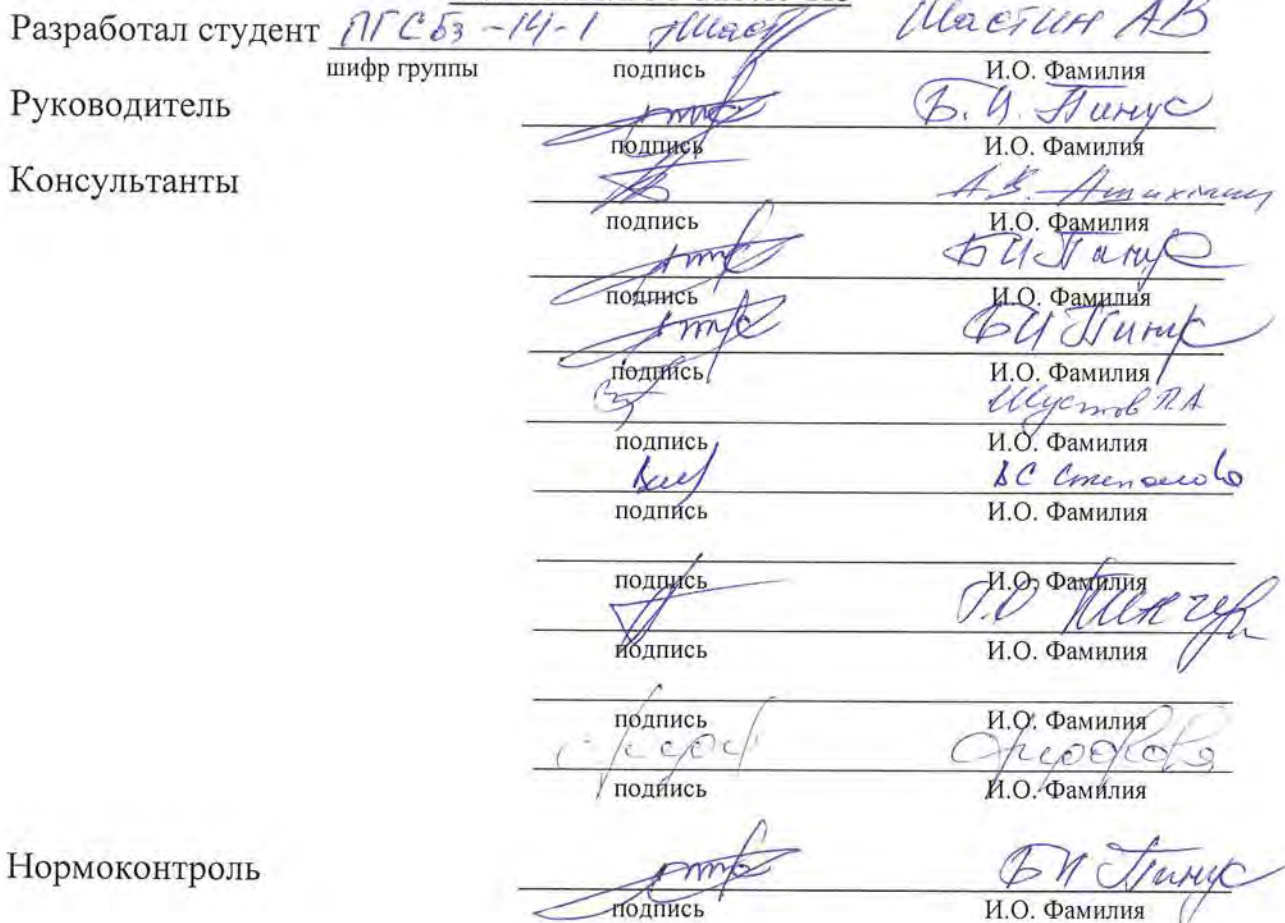 Разработал студент ПГСбз-14-1 Шастин АВ
шифр группы подпись И.О. Фамилия
Руководитель Б.И. Пинус
подпись И.О. Фамилия
Консультанты А.В.
подпись И.О. Фамилия
БИ Пинус
подпись И.О. Фамилия
БИ Пинус
подпись И.О. Фамилия
Шустов ПА
подпись И.О. Фамилия
ВС Степанова
подпись И.О. Фамилия
подпись И.О. Фамилия
подпись И.О. Фамилия
подпись И.О. Фамилия
подпись И.О. Фамилия
Нормоконтроль БИ Пинус
подпись И.О. Фамилия